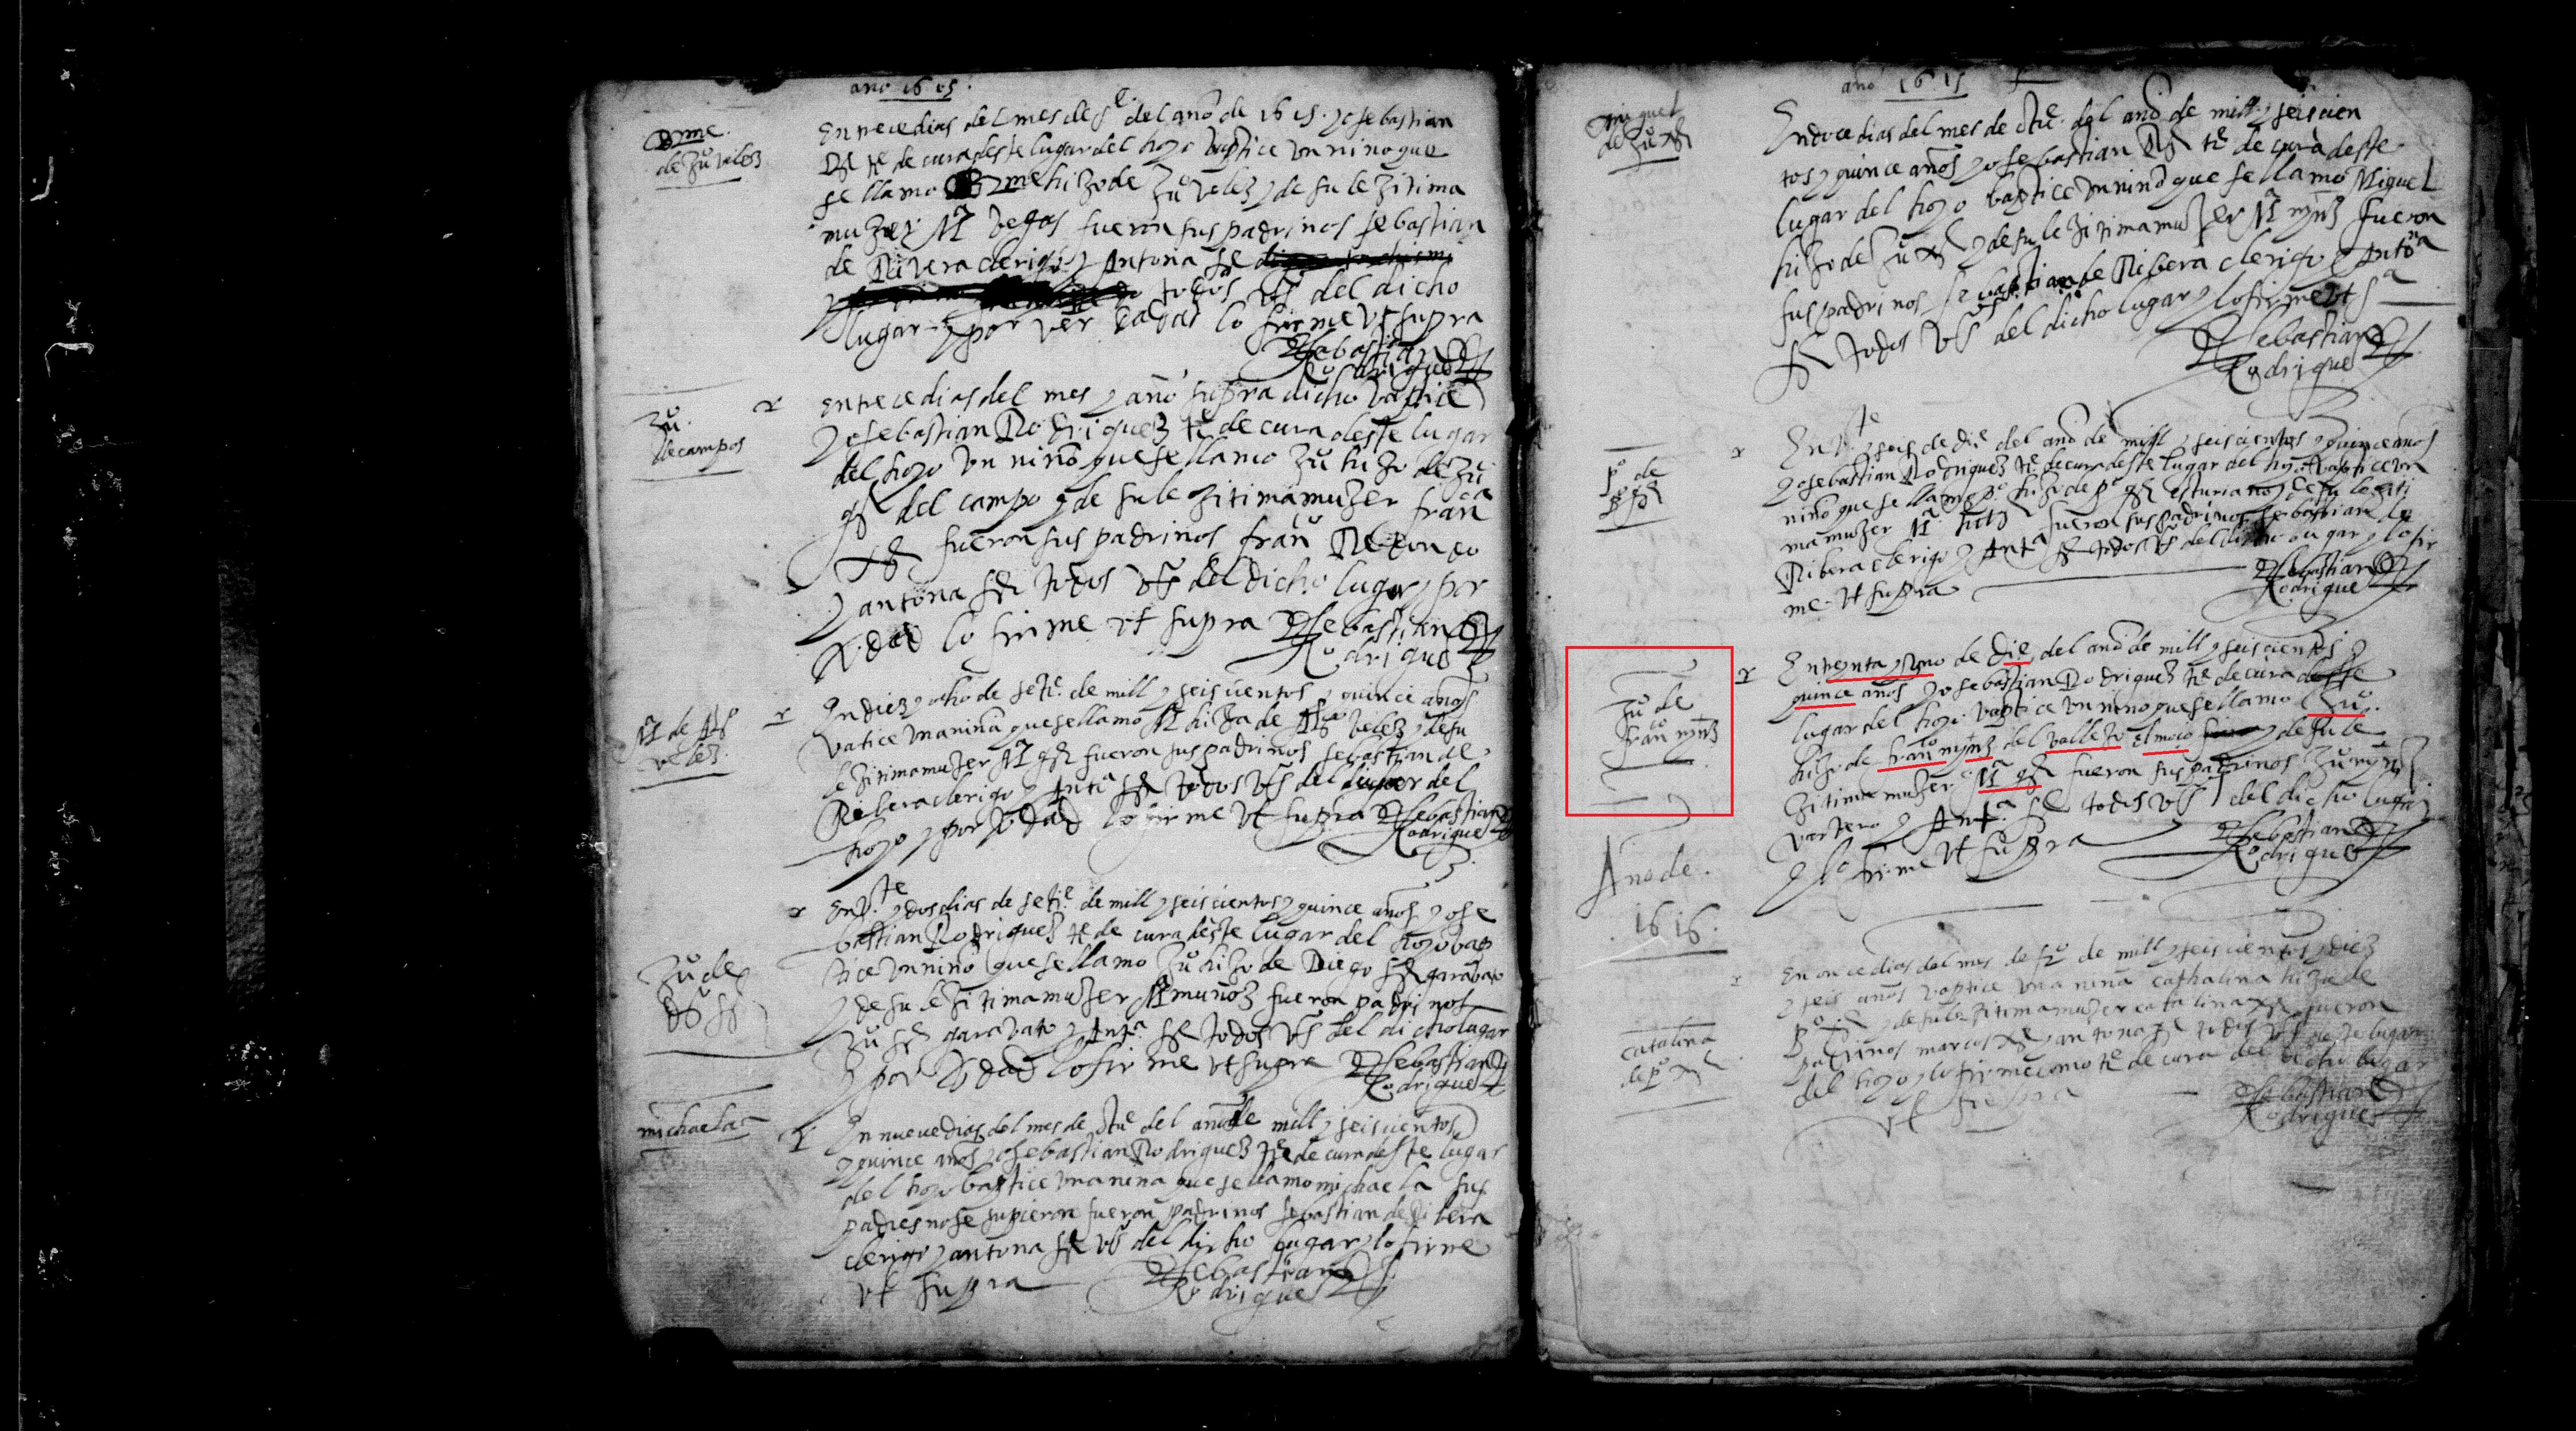 año 1615.
Bme.
de Juº velez
En trece dias del mes de del año de 1615. yo sebastian
Rz te de cura deste lugar del hoyo baptice un niño que
se llamo Bme hijo de Juº velez y de su lejitima
mujer Mª vegas fueron sus padrinos sebastian
de Rivera clerigo y Antona
todos vºs del dicho
lugar y por ver dadas lo firme ut supra
Sebastian
Rodriguez
Juº.
de campos
En trece dias del mes y año supra dicho baptice
yo sebastian Rodriguez te de cura deste lugar
del hoyo un niño que se llamo Juº hijo de Juº
gz del campo y de su lejitima mujer franca
fueron sus padrinos franco Redondo
y antona todos vºs del dicho lugar y por
verdad lo firme ut supra Sebastian
Rodriguez
Mª de Alº
velez.
En diez y ocho de sete. de mill y seiscientos y quince años
vatice una niña que se llamo Mª hija de velez y de su
lejitima mujer Mª gz fueron sus padrinos sebastian de
Ribera clerigo y Antª todos vºs del lugar del
hoyo y por verdad lo firme ut supra Sebastian
Rodriguez
En vte y dos dias de sete. de mill y seiscientos y quince años yo se
bastian Rodriguez te de cura deste lugar del hoyo bap
tice un niño que se llamo Juº hijo de Diego garabato
Juº de
dº
y de su lejitima mujer Mª muñoz fueron padrinos
Juº garavato y Antª. todos vºs del dicho lugar
y por verdad lo firme ut supra Sebastian
Rodriguez
michaela
En nueve dias del mes de otue del año de mill y seiscientos
y quince años yo sebastian Rodriguez te de cura deste lugar
del hoyo baptice una niña que se llamo michaela sus
padres no se supieron fueron padrinos sebastian de Ribera
clerigo y antona vºs del dicho lugar y lo firme
ut supra Sebastian
Rodriguez
año 1615
miguel
de Juº
En doce dias del mes de otue. del año de mill y seiscien
tos y quince años yo sebastian Rz te de cura deste
lugar del hoyo baptice un niño que se llamo Miguel
hijo de Juº y de su lejitima mujer Mª mynz fueron
sus padrinos sebastian de Ribera clerigo y Antona
todos vºs del dicho lugar y lo firme ut sª
Sebastian
Rodriguez
pº de
pº gz
En vte y seis de die del año de mill y seiscientos y quince años
yo sebastian Rodriguez te de cura deste lugar del hoyo baptice un
niño que se llamo pº hijo de pº gz esturiano y de su lejiti
ma mujer Mª fueron sus padrinos sebastian de
Ribera clerigo y Antª todos vºs del dicho lugar y lo fir
me ut supra
Sebastian
Rodriguez
Juº de
franco mynz
En treynta y uno de die del año de mill y seiscientos y
quince años yo sebastian Rodriguez te de cura deste
lugar del hoyo baptice un niño que se llamo Juº.
hijo de franco mynz del vallejo el moço y de su le
zitima mujer Mª gz fueron sus padrinos Juº mynz
vartero y Antª. todos vºs del dicho lugar
y lo firme ut supra
Sebastian
Rodriguez
Año de.
1616.
En once dias del mes de de mill y seiscientos y diez
y seis años baptice una niña cathalina hija de
catalina
de pº
pº y de su lejitima mujer catalina fueron
padrinos marcos y antona todos vºs deste lugar
del hoyo y lo firme como te de cura del dicho lugar
ut supra
Sebastian
Rodriguez